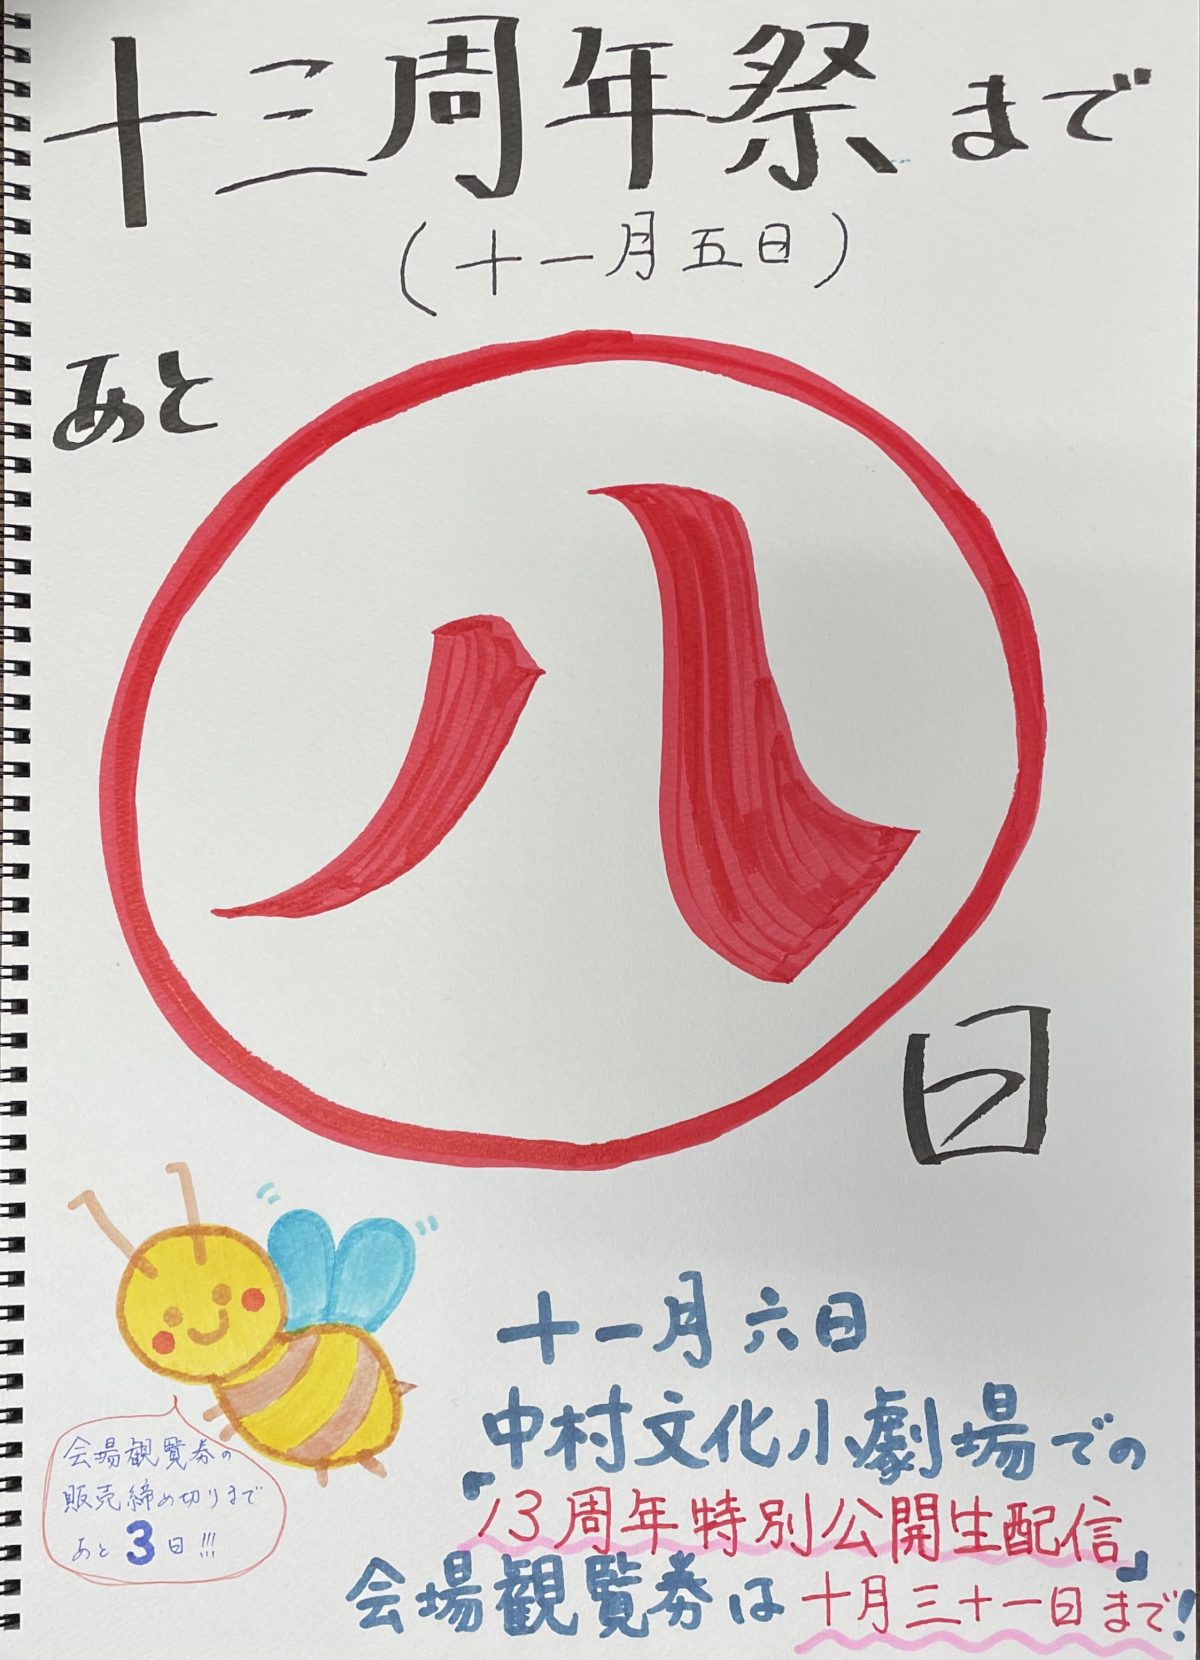 十三周年祭まで
(十一月五日)
あと
八
日
十一月六日
中村文化小劇場での
『13周年特別公開生配信』
会場観覧券は十月三十一日まで!
会場観覧券の
販売締め切りまで
あと3日!!!